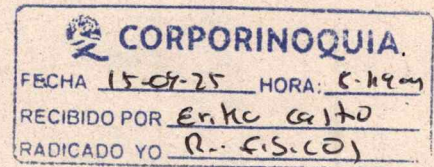 CORPORINOQUIA.
FECHA 15-09-25 HORA:
RECIBIDO POR Erika Castro
RADICADO YO R.. FISICOS